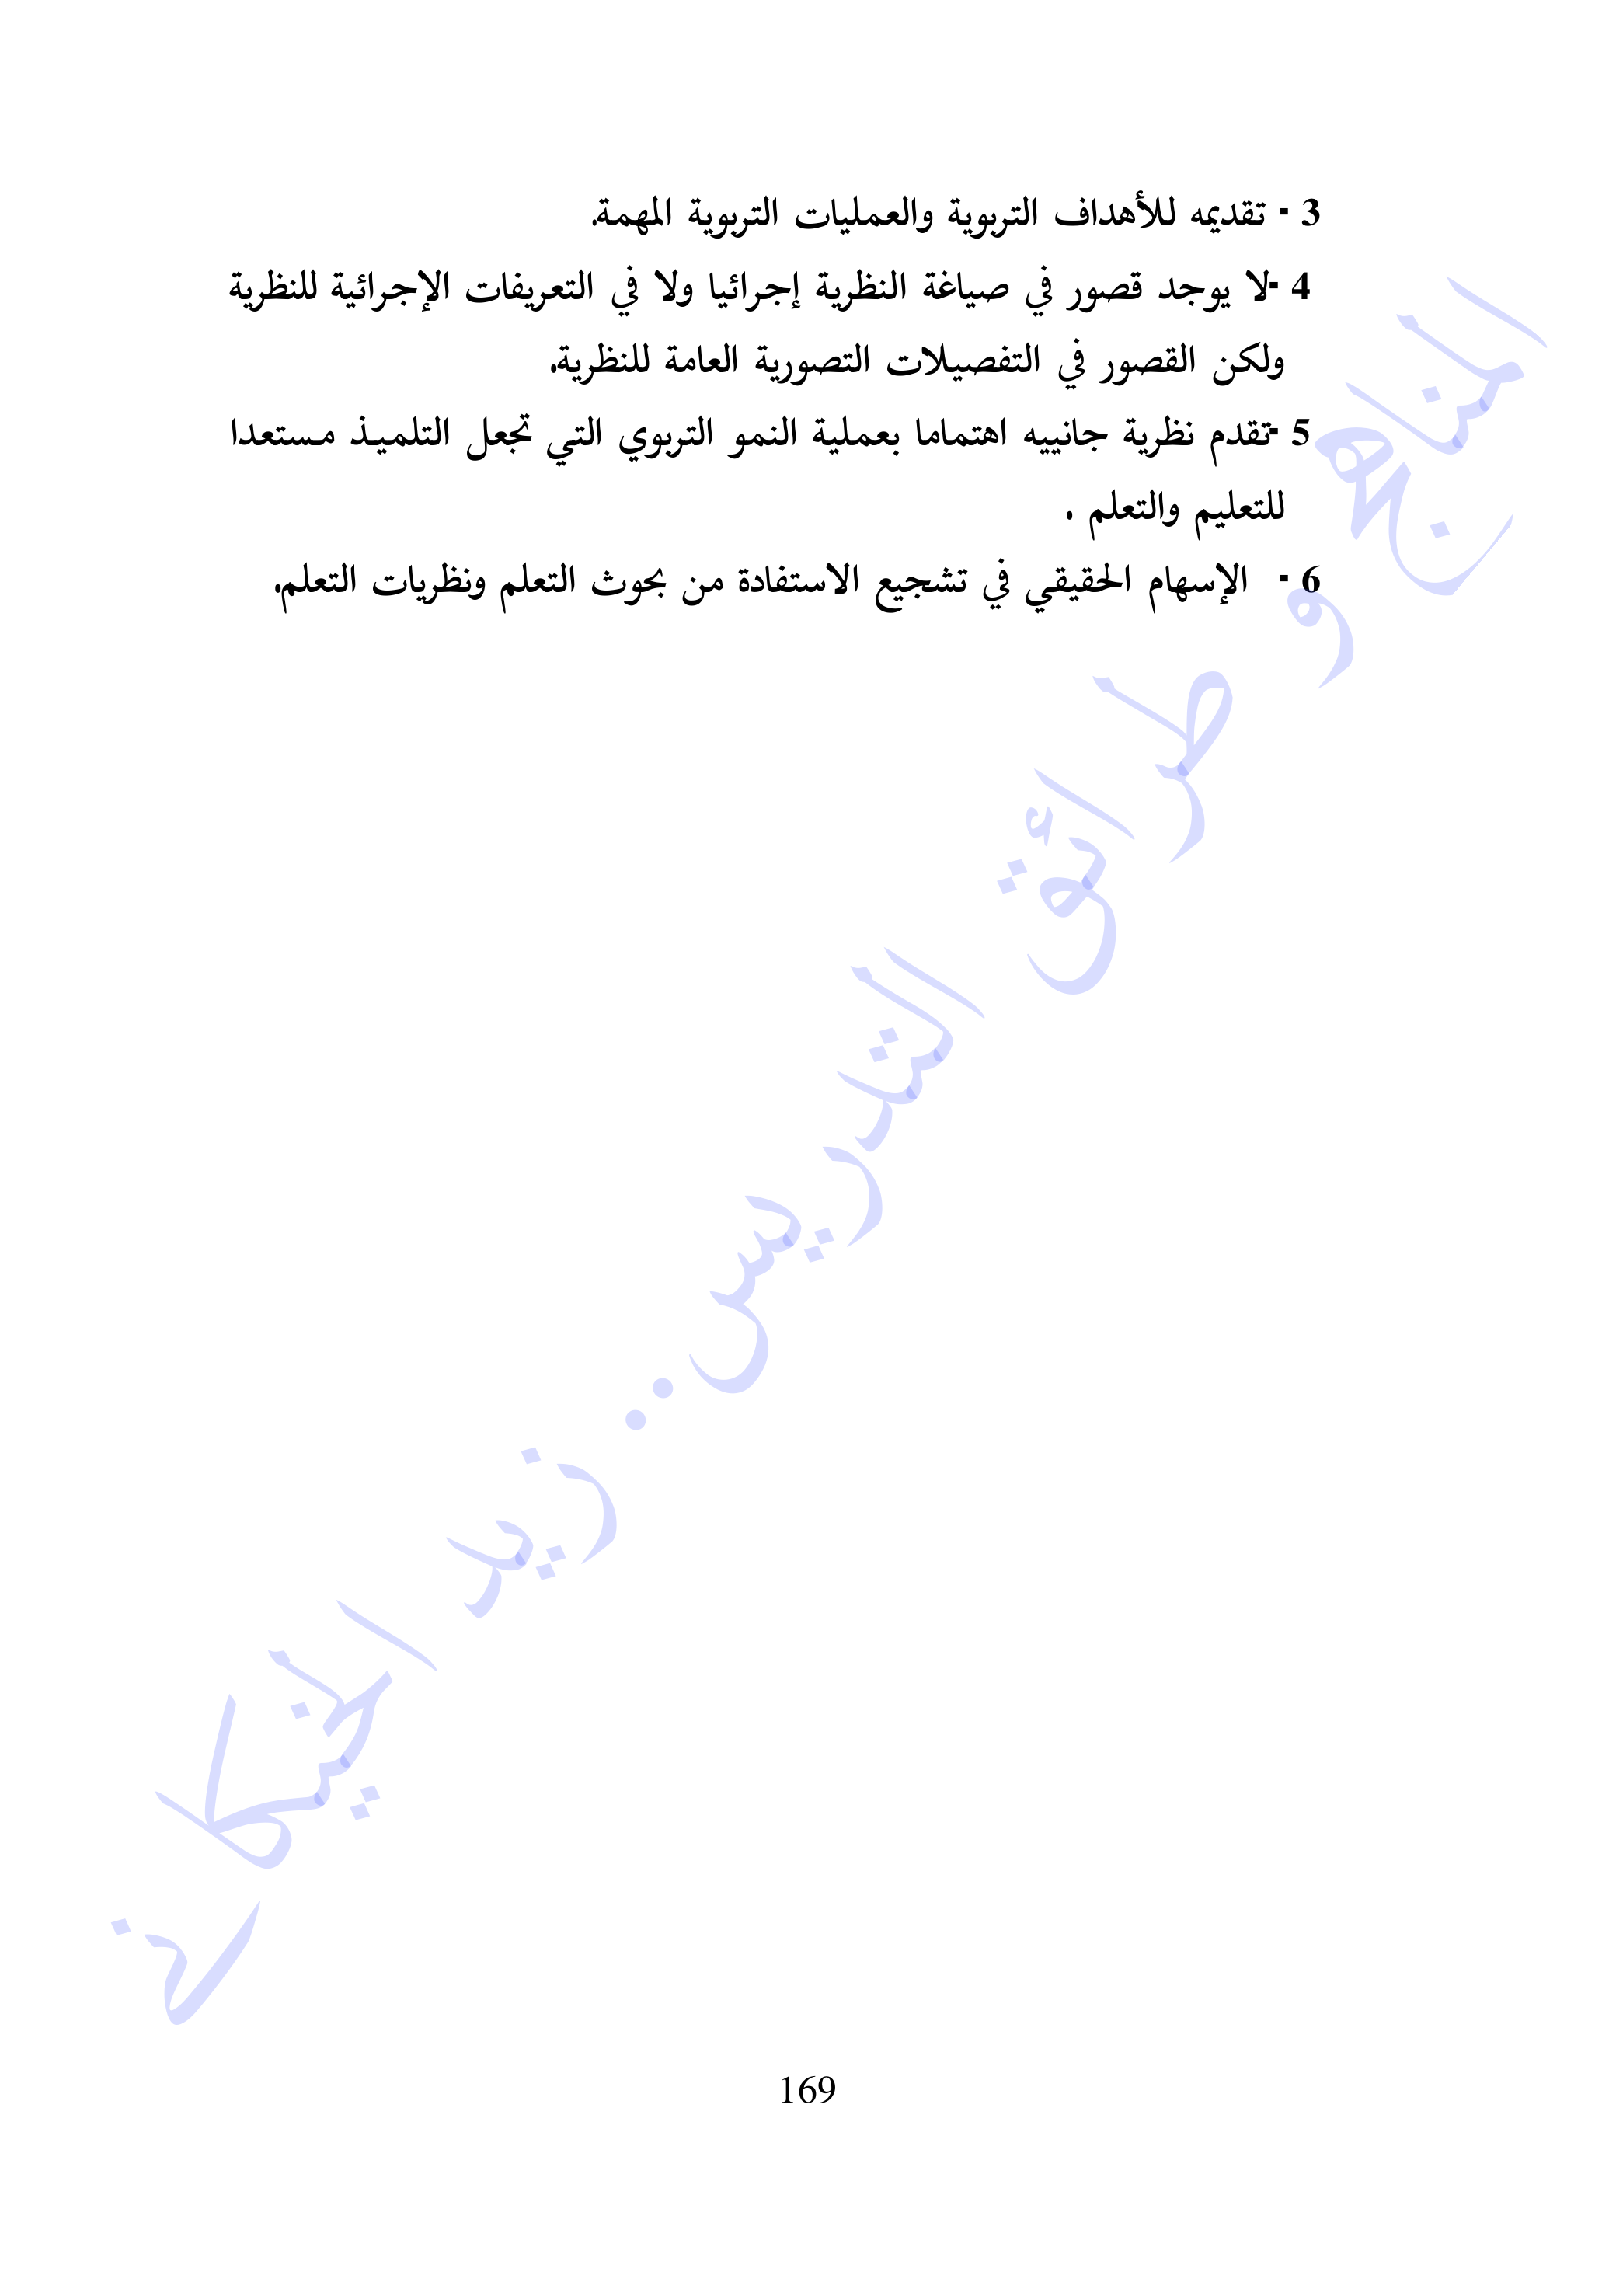 3 - تقديمه للأهداف التربوية والعمليات التربوية المهمة.
4 -لا يوجد قصور في صياغة النظرية إجرائيا ولا في التعريفات الإجرائية للنظرية
ولكن القصور في التفصيلات التصورية العامة للنظرية.
5 -تقدم نظرية جانييه اهتماما بعملية النمو التربوي التي تجعل التلميـذ مـستعدا
للتعليم والتعلم .
6 - الإسهام الحقيقي في تشجيع الاستفادة من بحوث التعلم ونظريات التعلم.
المناهج و طرائق التدريس.. زيد الخيكاني
169